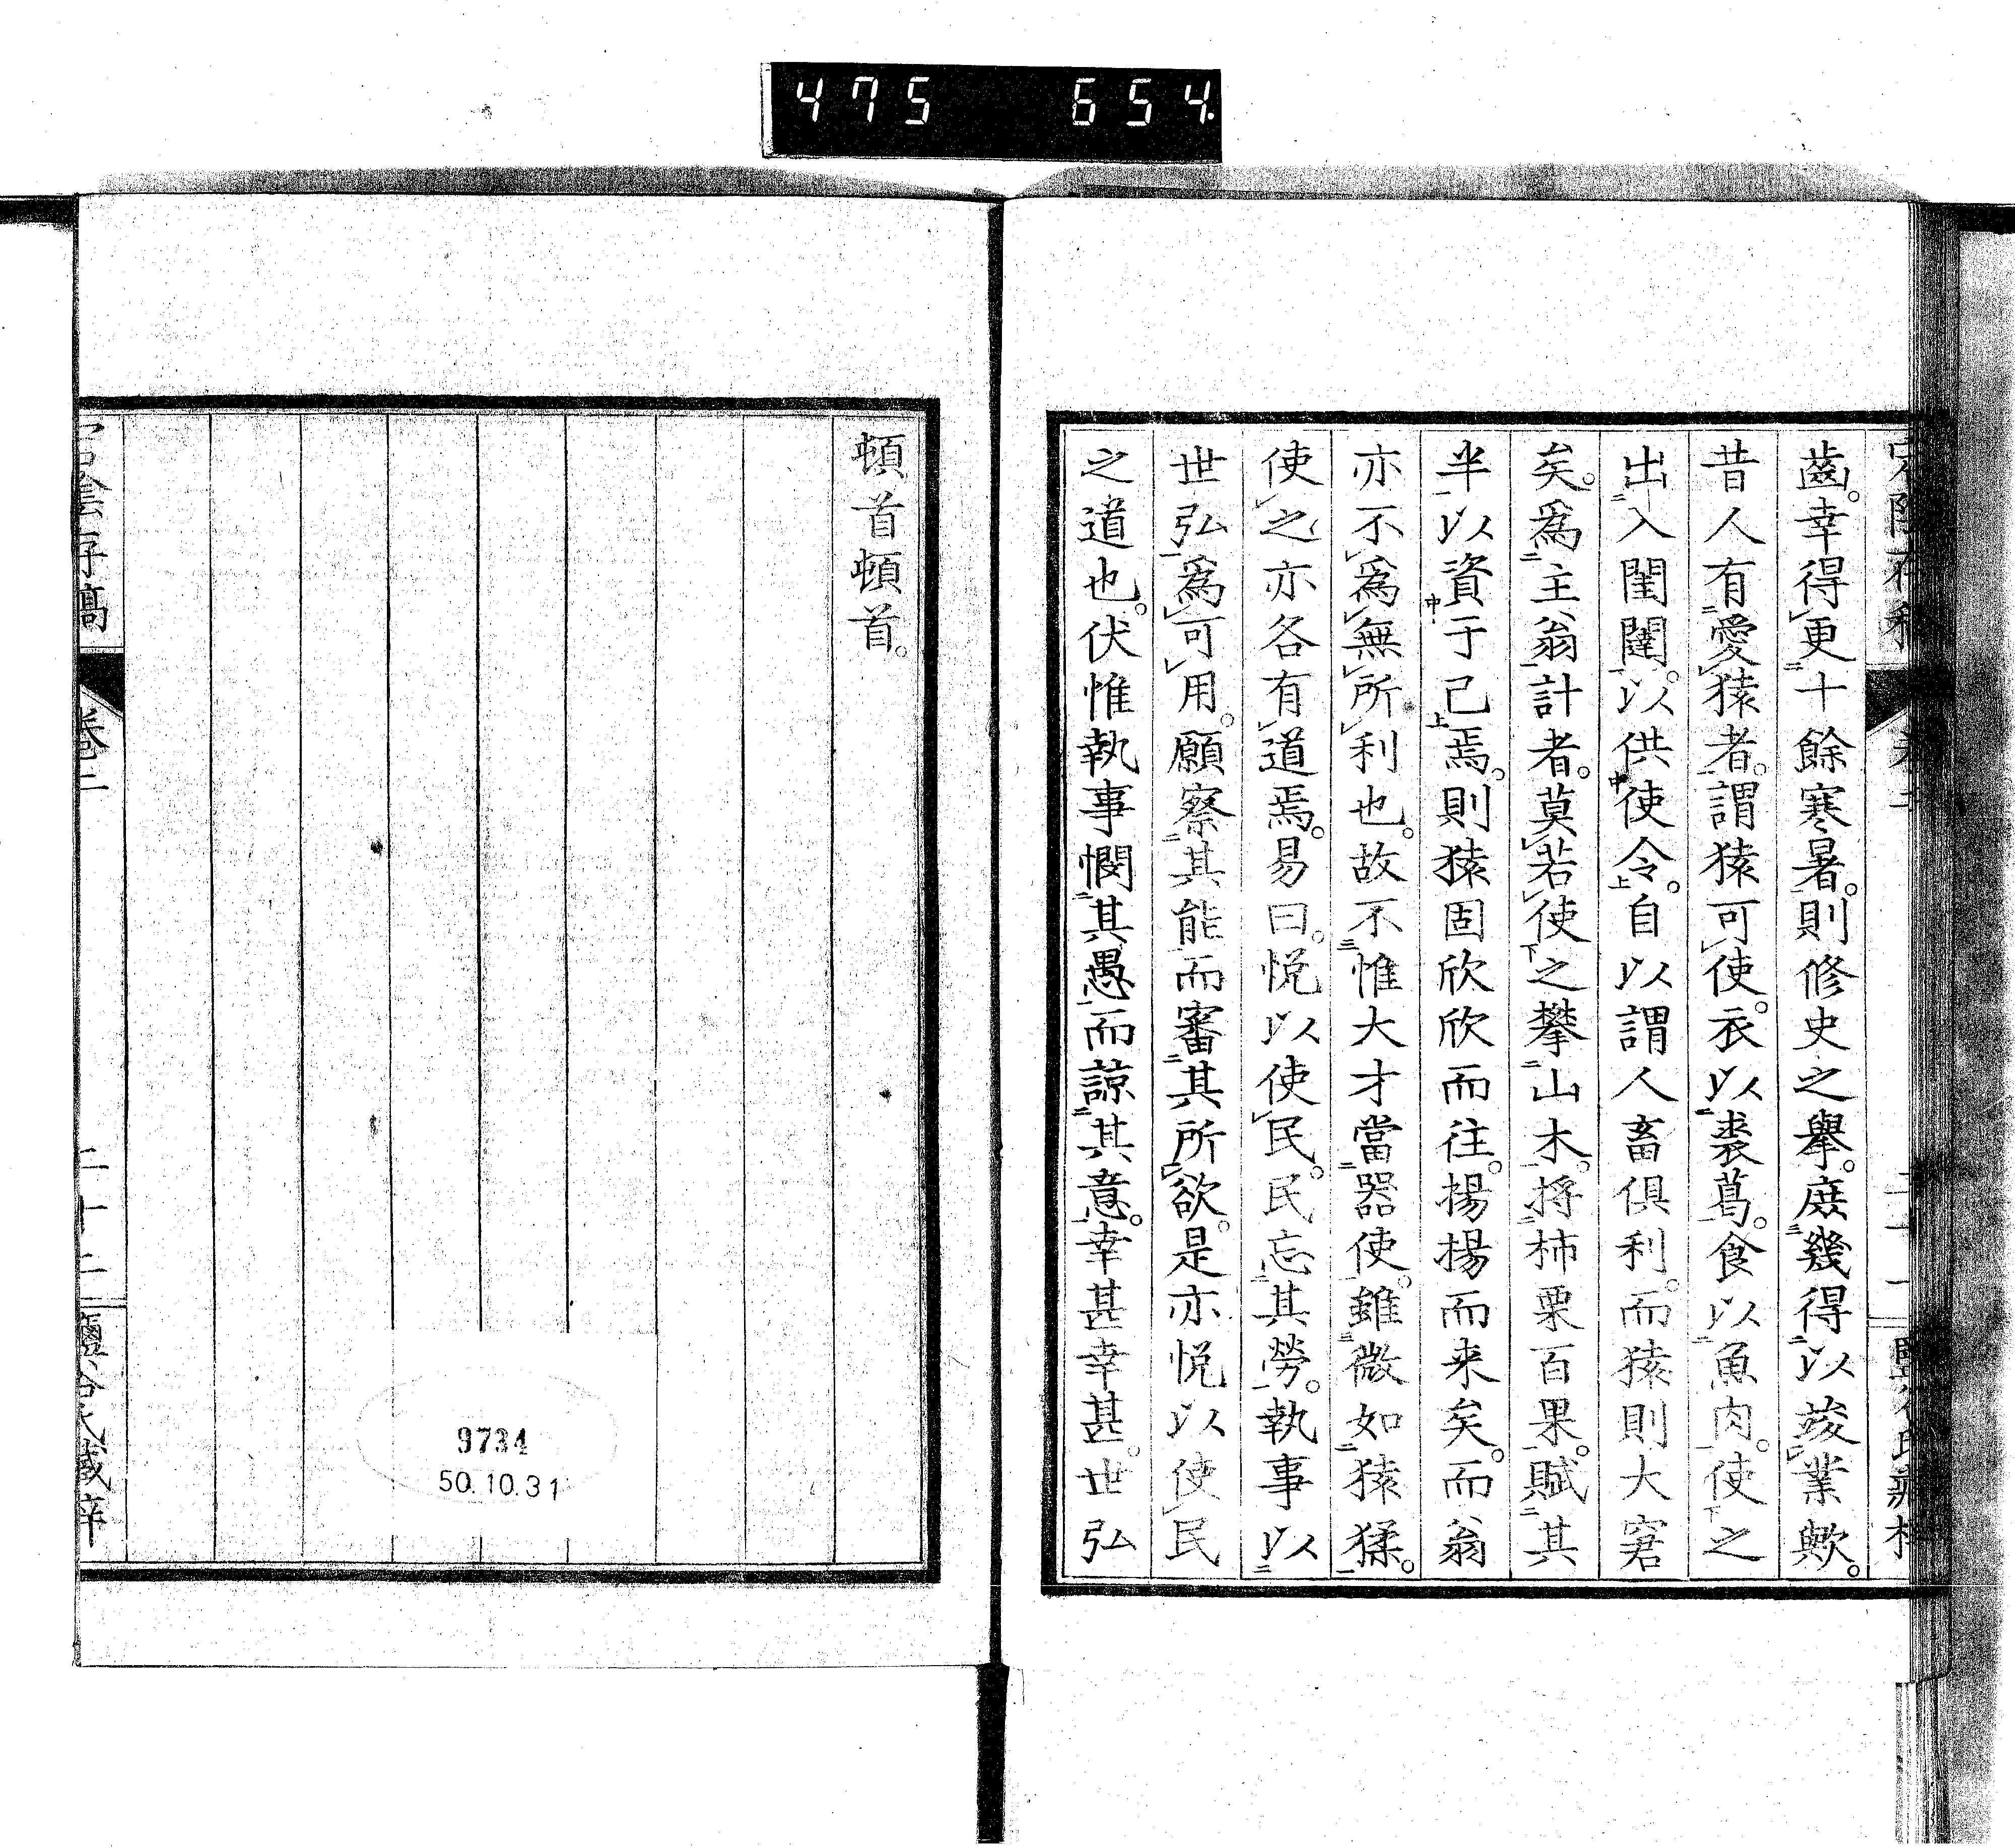 475 654.
齒。幸得更十餘寒暑。則修史之擧。庶幾得以竣業歟。
昔人有愛猿者。謂猿可使。衣以裘葛。食以魚肉。使之
出入閨闥。以供使令。自以謂人畜俱利。而猿則大窘
矣。爲主翁計者。莫若使之攀山木。捋柿栗百果。賦其
半以資于己焉。則猿固欣欣而往。揚揚而来矣。而翁
亦不爲無所利也。故不惟大才當器使。雖微如猿猱。
使之亦各有道焉。易曰。悦以使民。民忘其勞。執事以
世弘爲可用。願察其能而審其所欲。是亦悦以使民
之道也。伏惟執事憫其愚而諒其意。幸甚幸甚。世弘
頓首頓首。
宕陰存稿 卷二 二十二 鹽谷氏藏梓
9734
50.10.31